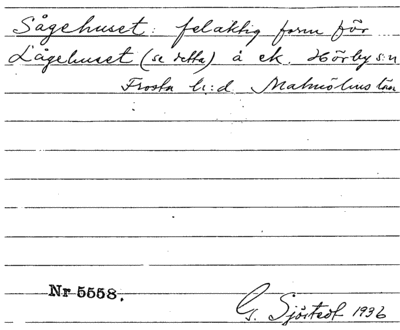 Sågehuset: felaktig form för
Lågehuset (se detta) å ek. Hörby sn
Frosta h:d Malmöhus län
Nr 5558.
G. Sjöstedt 1936